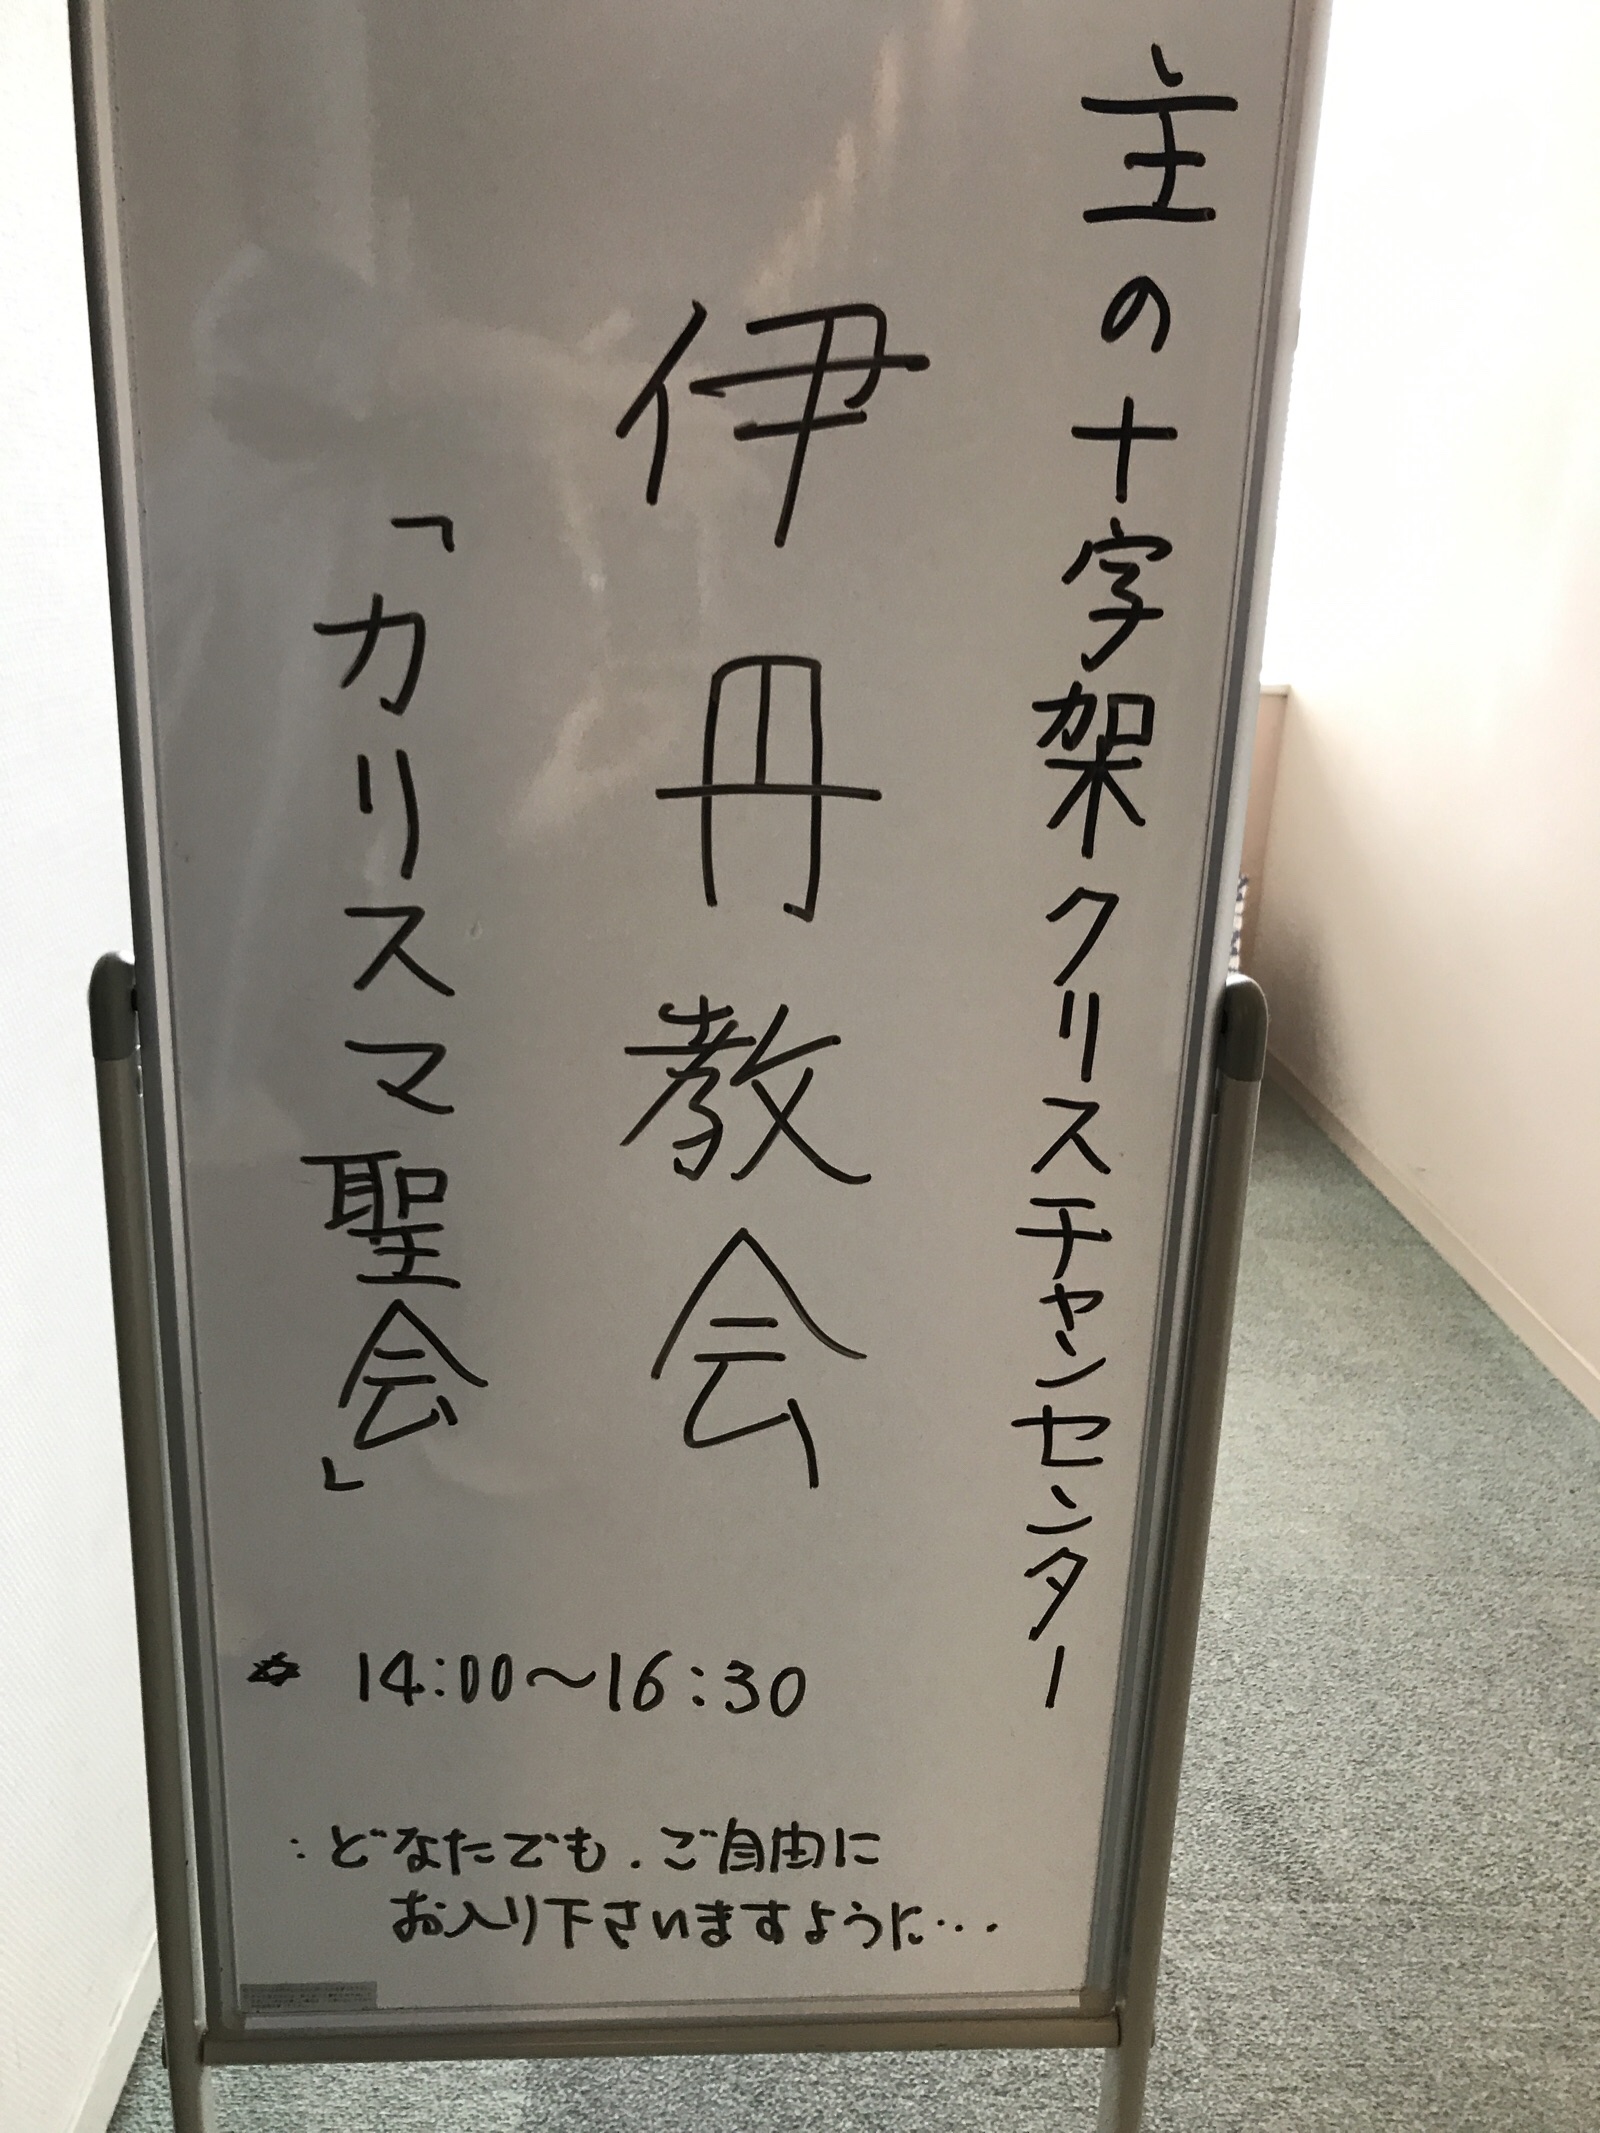 主の十字架クリスチャンセンター
伊丹教会
「カリスマ聖会」
✡ 14:00〜16:30
:どなたでも.ご自由に
お入り下さいますように…